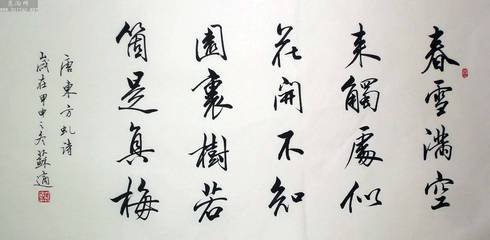 春雪滿空
來觸處似
花開不知
園裏樹若
箇是真梅
唐東方虬詩
歲在甲申之冬蘇適